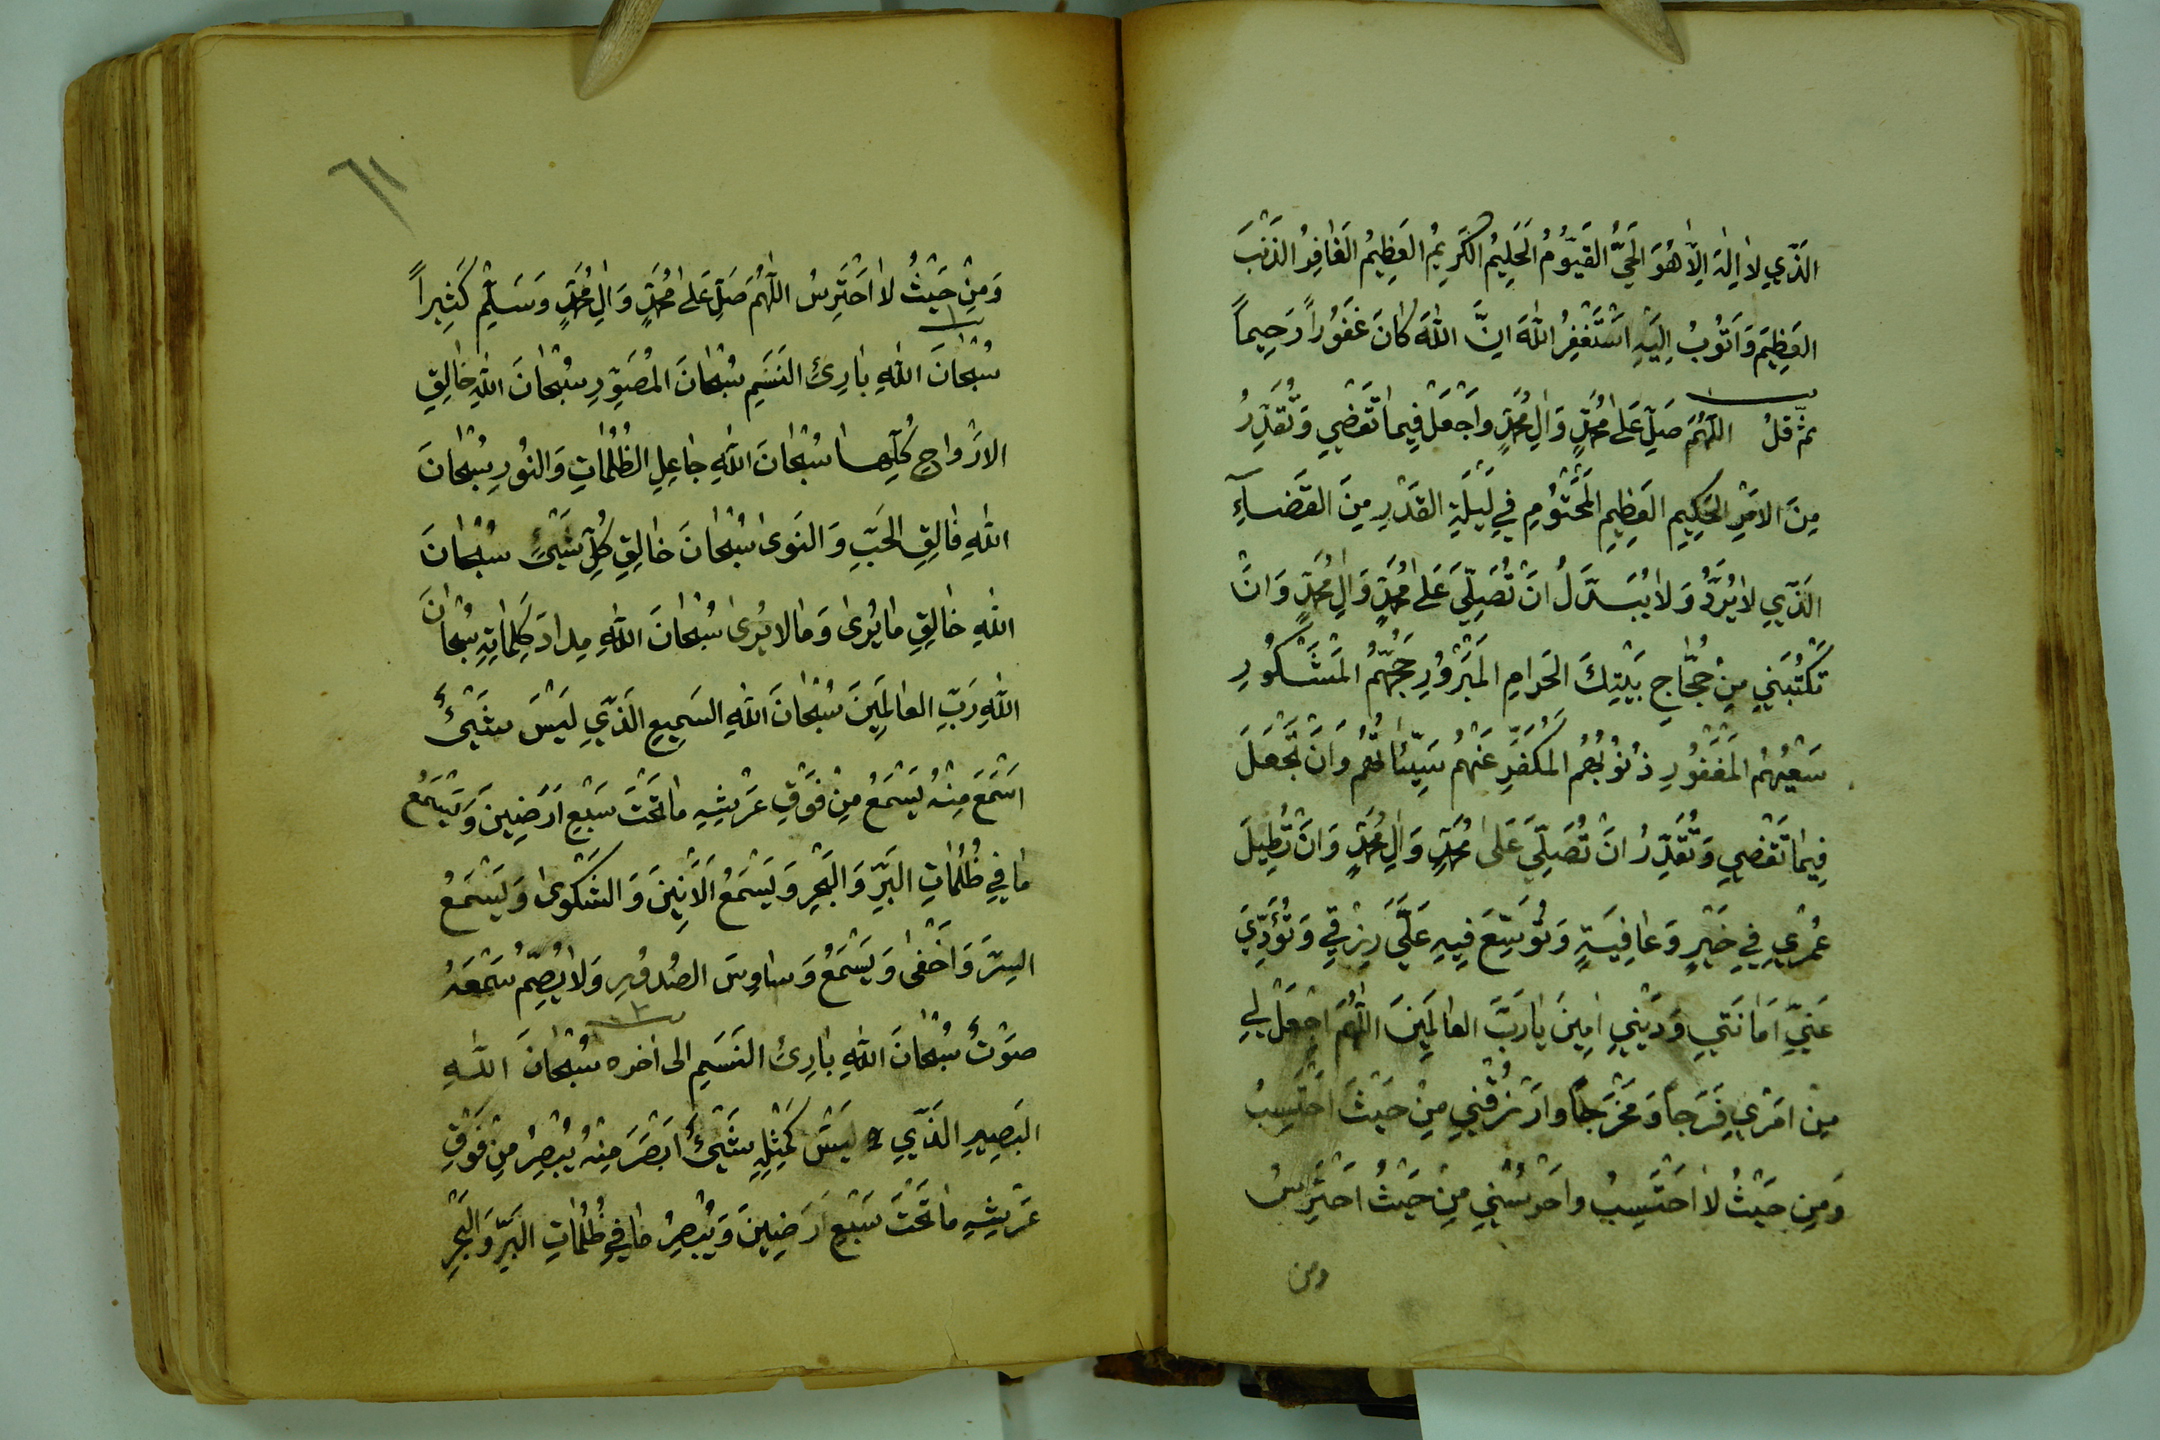 الَّذِي لا اِلٰهَ اِلاّٰ هُوَ الْحَيُّ الْقَيُّومُ الْحَلِيمُ الْكَرِيمُ الْعَظِيمُ الْغٰافِرُ الذَّنْبَ
الْعَظِيمَ وَاَتُوبُ اِلَيْهِ اَسْتَغْفِرُ اللّٰهَ اِنَّ اللّٰهَ كٰانَ غَفُوراً رَحِيماً
ثمّ قلْ اللّٰهُمَّ صَلِّ عَلىٰ مُحَمَّدٍ وَاٰلِ مُحَمَّدٍ وَاجْعَلْ فِيمٰا تَقْضِي وَتُقَدِّرُ
مِنَ الْاَمْرِ الْحَكِيمِ الْعَظِيمِ الْمَحْتُومِ فِي لَيْلَةِ الْقَدْرِ مِنَ الْقَضٰاءِ
الَّذِي لٰا يُرَدُّ وَلٰا يُبَدَّلُ اَنْ تُصَلِّيَ عَلىٰ مُحَمَّدٍ وَاٰلِ مُحَمَّدٍ وَاَنْ
تَكْتُبَنِي مِنْ حُجّٰاجِ بَيْتِكَ الْحَرامِ الْمَبْرُورِ حَجُّهُمُ الْمَشْكُورِ
سَعْيُهُمُ الْمَغْفُورِ ذُنُوبُهُمُ الْمُكَفَّرِ عَنْهُمْ سَيِّئٰاتُهُمْ وَاَنْ تَجْعَلَ
فِيمٰا تَقْضِي وَتُقَدِّرُ اَنْ تُصَلِّيَ عَلىٰ مُحَمَّدٍ وَاٰلِ مُحَمَّدٍ وَاَنْ تُطِيلَ
عُمْرِي فِي خَيْرٍ وَعٰافِيَةٍ وَتُوَسِّعَ فِيهِ عَلَيَّ رِزْقِي وَتُؤَدِّيَ
عَنِّي اَمٰانَتِي وَدَيْنِي اٰمِينَ يٰا رَبَّ الْعٰالَمِينَ اللّٰهُمَّ اجْعَلْ لِي
مِنْ اَمْرِي فَرَجاً وَمَخْرَجاً وارْزُقْنِي مِنْ حَيْثُ اَحْتَسِبُ
وَمِنْ حَيْثُ لا اَحْتَسِبُ واحْرُسْنِي مِنْ حَيْثُ اَحْتَرِسُ
ومن
٦١
وَمِنْ حَيْثُ لٰا اَحْتَرِسُ اللّٰهُمَّ صَلِّ عَلىٰ مُحَمَّدٍ وَاٰلِ مُحَمَّدٍ وَسَلِّمْ كَثِيراً
سُبْحٰانَ اللّٰهِ بٰارِئِ النَّسَمِ سُبْحٰانَ الْمُصَوِّرِ سُبْحٰانَ اللّٰهِ خٰالِقِ
الْاَزْواجِ كُلِّهٰا سُبْحٰانَ اللّٰهِ جٰاعِلِ الظُّلُمٰاتِ وَالنُّورِ سُبْحٰانَ
اللّٰهِ فٰالِقِ الْحَبِّ وَالنَّوىٰ سُبْحٰانَ خٰالِقِ كُلِّ شَيْئٍ سُبْحٰانَ
اللّٰهِ خٰالِقِ مٰا يُرىٰ وَمٰا لا يُرىٰ سُبْحٰانَ اللّٰهِ مِدادَ كَلِمٰاتِهِ سُبْحٰانَ
اللّٰهِ رَبِّ الْعٰالَمِينَ سُبْحٰانَ اللّٰهِ السَّمِيعِ الَّذِي لَيْسَ شَيْئٌ
اَسْمَعَ مِنْهُ يَسْمَعُ مِنْ فَوْقِ عَرْشِهِ مٰا تَحْتَ سَبْعِ اَرَضِينَ وَيَسْمَعُ
مٰا فِي ظُلُمٰاتِ الْبَرِّ وَالْبَحْرِ وَيَسْمَعُ الْاَنِينَ وَالشَّكْوىٰ وَيَسْمَعُ
السِّرَّ وَاَخْفىٰ وَيَسْمَعُ وَسٰاوِسَ الصُّدُورِ وَلٰا يُصِمُّ سَمْعَهُ
صَوْتٌ سُبْحٰانَ اللّٰهِ بٰارِئِ النَّسَمِ الى اٰخره سُبْحٰانَ اللّٰهِ
الْبَصِيرِ الَّذِي لَيْسَ كَمِثْلِهِ شَيْئٌ اَبْصَرَ مِنْهُ يُبْصِرُ مِنْ فَوْقِ
عَرْشِهِ مٰا تَحْتَ سَبْعِ اَرَضِينَ وَيُبْصِرُ مٰا فِي ظُلُمٰاتِ الْبَرِّ وَالْبَحْرِ